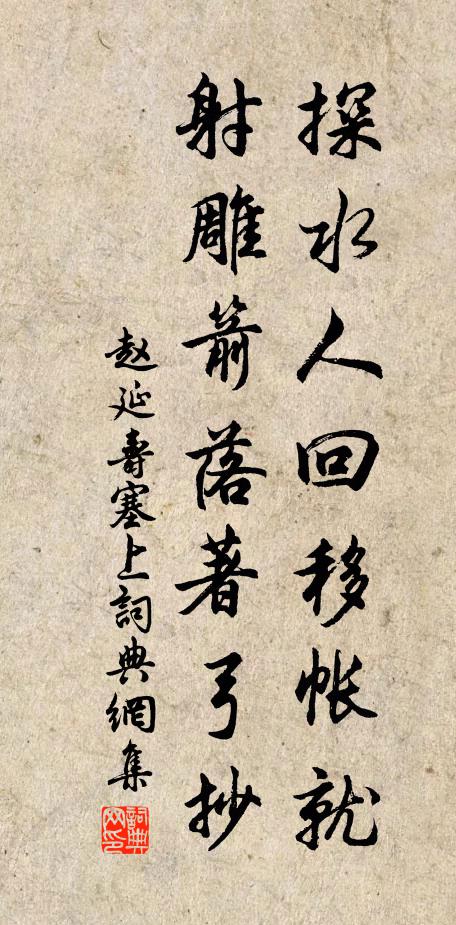 探水人回移帐就
射雕箭落著弓抄
赵延寿塞上詞典網集
詞典网印